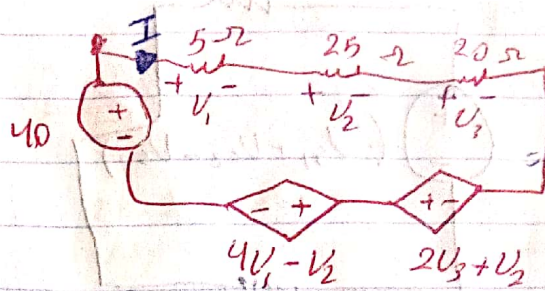 I
5Ω 25 Ω 20 Ω
+ V₁ - + V₂ - + V₃ -
40
+
-
- + + -
4V₁ - V₂ 2V₃ + V₂